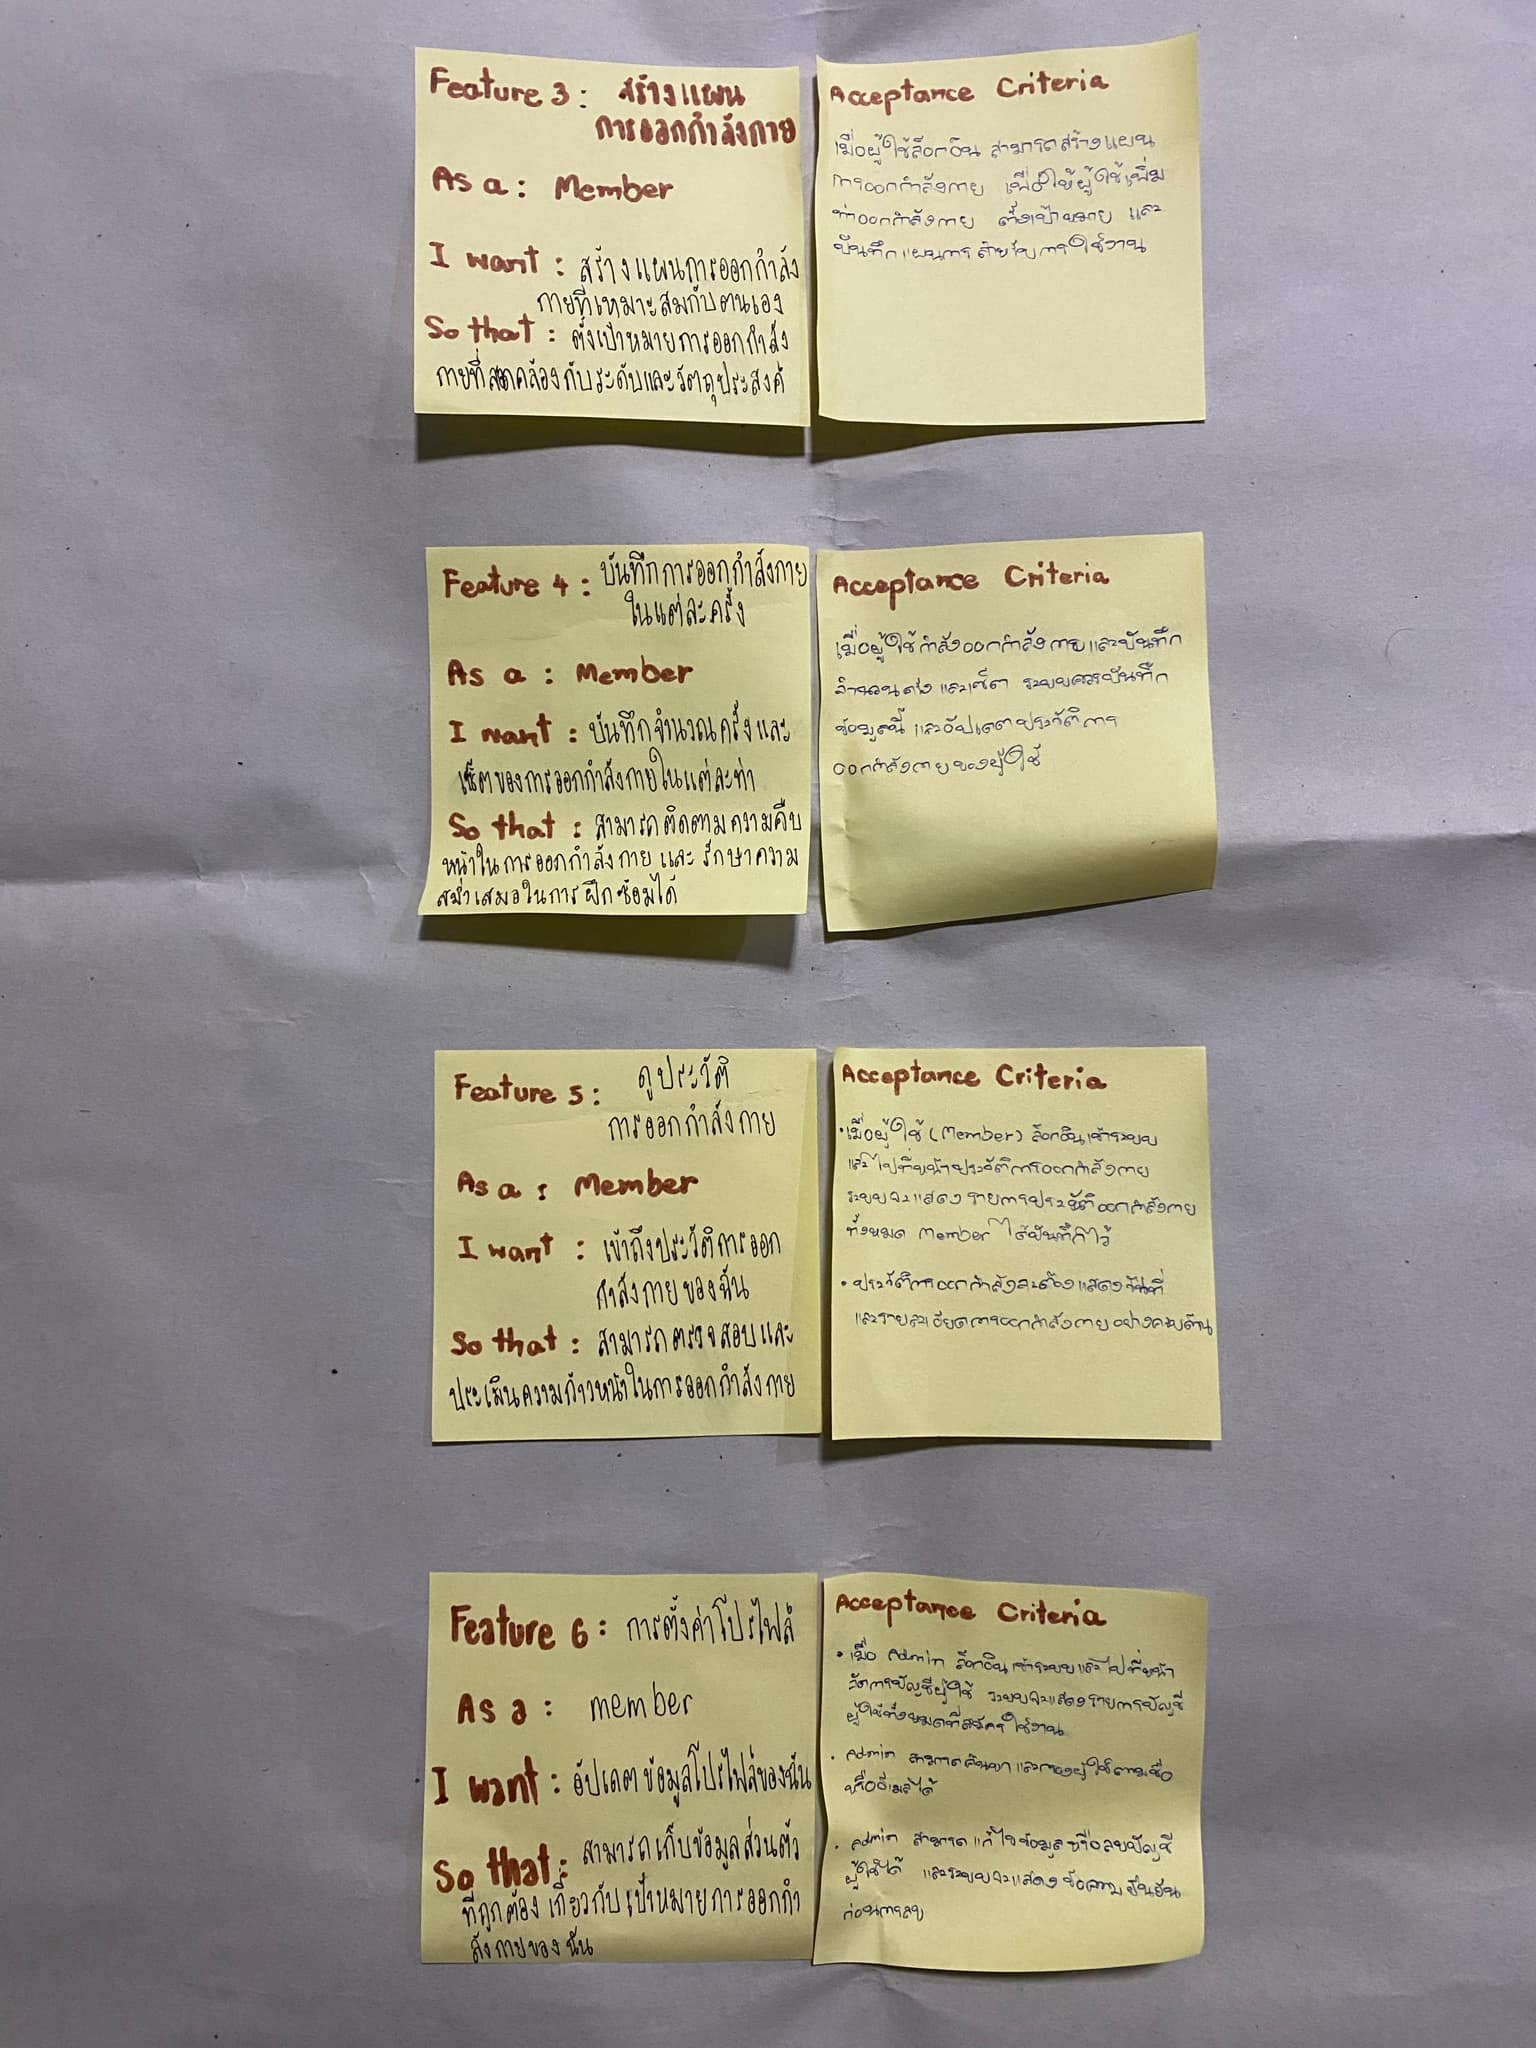 Feature 3 : สร้างแผน
การออกกำลังกาย
As a : Member
I want : สร้างแผนการออกกำลัง
กายที่เหมาะสมกับตนเอง
So that : ตั้งเป้าหมายการออกกำลัง
กายที่สอดคล้องกับระดับและวัตถุประสงค์
Acceptance Criteria
เมื่อผู้ใช้ล็อกอิน สามารถสร้างแผน
การออกกำลังกาย เพื่อให้ผู้ใช้เพิ่ม
ท่าออกกำลังกาย ตั้งเป้าหมาย และ
บันทึกแผนการสำหรับการใช้งาน
Feature 4 : บันทึกการออกกำลังกาย
ในแต่ละครั้ง
As a : Member
I want : บันทึกจำนวณครั้งและ
เซ็ตของการออกกำลังกายในแต่ละท่า
So that : สามารถติดตามความคืบ
หน้าในการออกกำลังกาย และ รักษาความ
สม่ำเสมอในการฝึกซ้อมได้
Acceptance Criteria
เมื่อผู้ใช้กำลังออกกำลังกายและบันทึก
จำนวนครั้งและเซ็ต ระบบควรบันทึก
ข้อมูลนี้ และอัปเดตประวัติการ
ออกกำลังกายของผู้ใช้
Feature 5 : ดูประวัติ
การออกกำลังกาย
As a : Member
I want : เข้าถึงประวัติการออก
กำลังกายของฉัน
So that : สามารถตรวจสอบและ
ประเมินความก้าวหน้าในการออกกำลังกาย
Acceptance Criteria
• เมื่อผู้ใช้ (Member) ล็อกอินเข้าระบบ
และไปที่หน้าประวัติการออกกำลังกาย
ระบบจะแสดงรายการประวัติออกกำลังกาย
ทั้งหมด Member ได้บันทึกไว้
• ประวัติการออกกำลังจะต้องแสดงวันที่
และรายละเอียดการออกกำลังกายอย่างครบถ้วน
Feature 6 : การตั้งค่าโปรไฟล์
As a : member
I want : อัปเดตข้อมูลโปรไฟล์ของฉัน
So that : สามารถเก็บข้อมูลส่วนตัว
ที่ถูกต้อง เกี่ยวกับ เป้าหมายการออกกำ
ลังกายของฉัน
Acceptance Criteria
• เมื่อ Admin ล็อกอินเข้าระบบและไปที่หน้า
จัดการบัญชีผู้ใช้ ระบบจะแสดงรายการบัญชี
ผู้ใช้ทั้งหมดที่สมัครใช้งาน
• Admin สามารถค้นหาและกรองผู้ใช้ตามชื่อ
หรืออีเมลได้
• Admin สามารถแก้ไขข้อมูลหรือลบบัญชี
ผู้ใช้ได้ และระบบจะแสดงข้อความยืนยัน
ก่อนการลบ